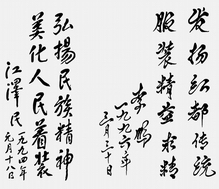 发扬红都传统
服装精益求精
李鹏
一九九六年
三月三十日
弘揚民族精神
美化人民着装
江泽民
一九九四年
元月十八日